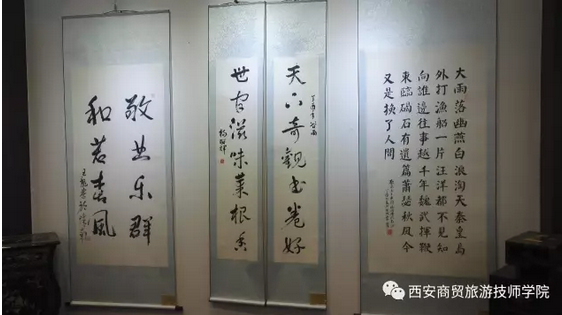 敬业乐群
和若春風
天下奇觀书卷好
世间滋味菜根香
大雨落幽燕白浪滔天秦皇島
外打漁船一片汪洋都不見知
向誰邊往事越千年魏武揮鞭
東臨碣石有遺篇蕭瑟秋風今
又是换了人間
西安商贸旅游技师学院